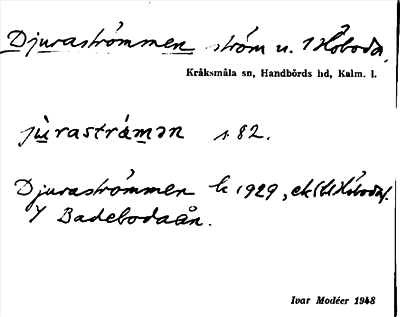 Djuraströmmen ström u. 1 Höboda.
Kråksmåla sn, Handbörds hd, Kalm. l.
jùrastrámən s 82.
Djuraströmmen k 1929, ek (bl Höboda).
Y Badebodaån.
Ivar Modéer 1948